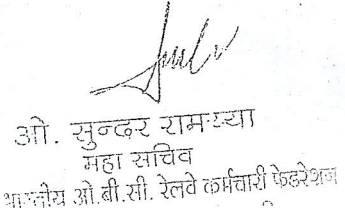 ओ. सुन्दर रामय्या
महा सचिव
भारतीय ओ.बी.सी. रेलवे कर्मचारी फेडरेशन